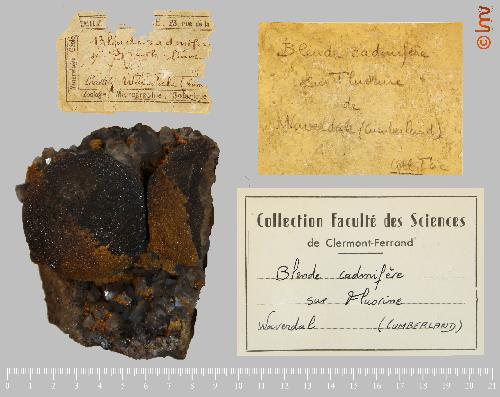 E. 23, rue de la
Blende cadmifère
Minéralogie Géolo
Zoologie Micrographie Botanique
Blende cadmifère
sur Fluorine
de
Waverdale (Cumberland)
Collection Faculté des Sciences
de Clermont-Ferrand
Blende cadmifère
sur Fluorine
Waverdale (CUMBERLAND)
lmv
0 1 2 3 4 5 6 7 8 9 10 11 12 13 14 15 16 17 18 19 20 21